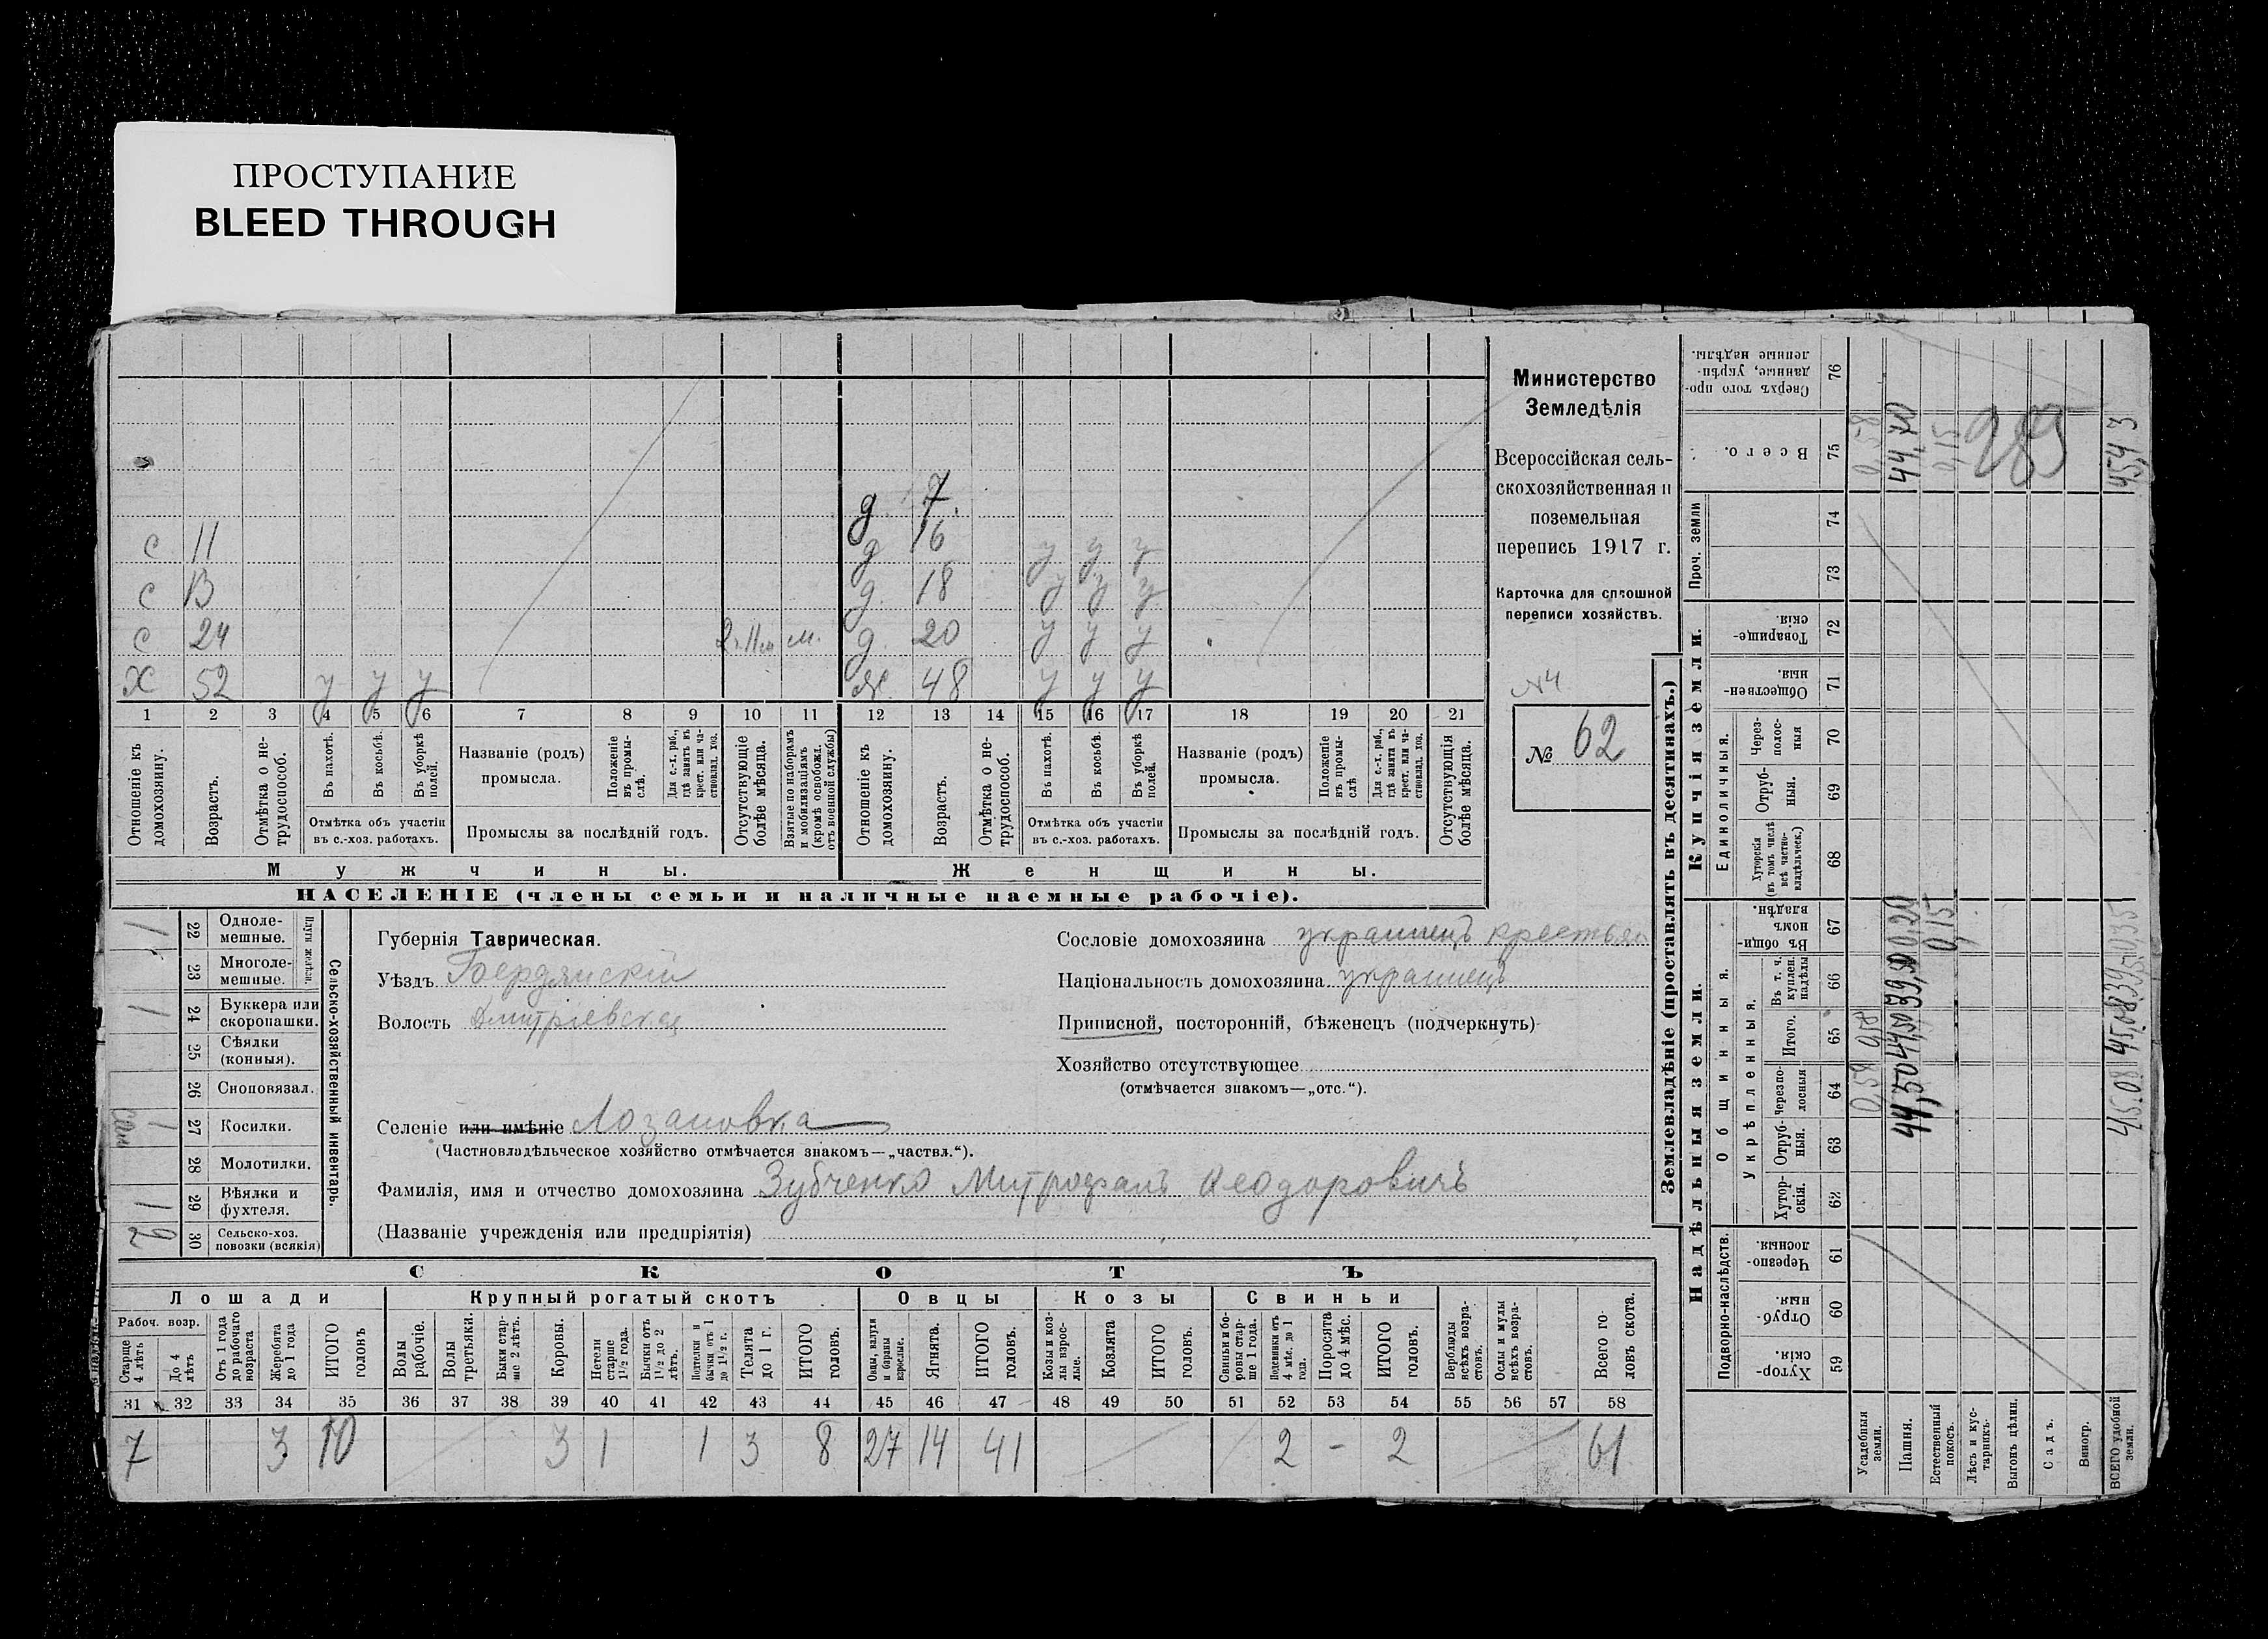 ПРОСТУПАНИЕ
BLEED THROUGH
д 7.
с 11 д 16 у у у
с 13 д. 18 у у у
с 24 м. д. 20 у у у
Х 52 у у у ж. 48 у у у
1 2 3 4 5 6 7 8 9 10 11 12 13 14 15 16 17 18 19 20 21
Отношеніе къ домохозяину.
Возрастъ.
Отмѣтка о не-трудоспособ.
Въ пахотѣ.
Въ косьбѣ.
Въ уборкѣ полей.
Отмѣтка объ участіи
въ с.-хоз. работахъ.
Названіе (родъ)
промысла.
Положеніе въ промы-слѣ.
Для с.-х. раб., гдѣ занятъ въ крест. или ча-стновлад. хоз.
Промыслы за послѣдній годъ.
Отсутствующіе болѣе мѣсяца.
Взятые по наборамъ и мобилизаціямъ (кромѣ освобожд. отъ военной службы)
Отношеніе къ домохозяину.
Возрастъ.
Отмѣтка о не-трудоспособ.
Въ пахотѣ.
Въ косьбѣ.
Въ уборкѣ полей.
Отмѣтка объ участіи
въ с.-хоз. работахъ.
Названіе (родъ)
промысла.
Положеніе въ промы-слѣ
Для с.-х. раб., гдѣ занята въ крест. или ча-стновлад. хоз.
Промыслы за послѣдній годъ.
Отсутствующія болѣе мѣсяца.
Мужчины.
Женщины.
НАСЕЛЕНІЕ (члены семьи и наличные наемные рабочіе).
Министерство
Земледѣлія
Всероссійская сель-
скохозяйственная и
поземельная
перепись 1917 г.
Карточка для сплошной
переписи хозяйствъ.
№ 4
№ 62
1 22 Одноле-мешные.
23 Многоле-мешные.
Плуги желѣзн.
1 24 Буккера или скоропашки.
25 Сѣялки (конныя).
26 Сноповязал.
1 27 Косилки.
28 Молотилки.
1 29 Вѣялки и фухтеля.
2 30 Сельско-хоз. повозки (всякія)
Сельско-хозяйственный инвентарь.
Губернія Таврическая.
Уѣздъ Бердянскій
Волость Дмитріевская
Селеніе или имѣніе Лозановка
(Частновладѣльческое хозяйство отмѣчается знакомъ—„частвл.“).
Фамилія, имя и отчество домохозяина Зубченко Митрофанъ Феодоровичъ
(Названіе учрежденія или предпріятія)
Сословіе домохозяина украинецъ крестьян
Національность домохозяина украинецъ
Приписной, посторонній, бѣженецъ (подчеркнуть)
Хозяйство отсутствующее
(отмѣчается знакомъ—„отс.“).
СКОТЪ
Лошади
Крупный рогатый скотъ
Овцы
Козы
Свиньи
Рабоч. возр.
Старше 4 лѣтъ
До 4 лѣтъ
Отъ 1 года до рабочаго возраста
Жеребята до 1 года
ИТОГО головъ
Волы рабочіе.
Волы третьяки.
Быки стар-ше 2 лѣтъ.
Коровы.
Нетели старше 1½ года.
Бычки отъ 1½ до 2 лѣтъ.
Подтелки и бычки отъ 1 до 1½ г.
Телята до 1 г.
ИТОГО головъ.
Овцы, валухи и бараны взрослые.
Ягнята.
ИТОГО головъ.
Козы и коз-лы взрос-лые.
Козлята
ИТОГО головъ.
Свиньи и бо-ровы стар-ше 1 года.
Подсвинки отъ 4 мѣс. до 1 года.
Поросята до 4 мѣс.
ИТОГО головъ.
Верблюды всѣхъ возра-стовъ.
Ослы и мулы всѣхъ возра-стовъ.
Всего го-ловъ скота.
31 32 33 34 35 36 37 38 39 40 41 42 43 44 45 46 47 48 49 50 51 52 53 54 55 56 57 58
7 3 10 3 1 1 3 8 27 14 41 2 – 2 61
Землевладѣніе (проставлять въ десятинахъ.)
Надѣльныя земли.
Купчія земли.
Проч. земли
Подворно-наслѣдств.
Общинныя.
Укрѣпленныя.
Единоличныя.
Хутор-скія. 59
Отруб-ныя. 60
Черезпо-лосныя. 61
Хутор-скія. 62
Отруб-ныя. 63
Черезпо-лосныя 64
Итого. 65
Въ т. ч. куплен. надѣлы 66
Въ общи-номъ владѣн. 67
Хуторскія (въ томъ числѣ всѣ частно-владѣльческ.) 68
Отруб-ныя. 69
Через-полос-ныя 70
Обществен-ныя. 71
Товарище-скія. 72
73
74
Всего. 75
Сверхъ того про-данные, укрѣп-ленные надѣлы. 76
Усадебныя земли. 0,58 0,58 0,58
Пашня. 44,50 44,50 39,39 0,20 44,70
Естественный покосъ. 0,15 0,15
Лѣсъ и кус-тарникъ.
Выгонъ цѣлин.
Садъ.
Виногр.
ВСЕГО удобной земли. 45.08 45,08 39,39 0,35 45,43
985